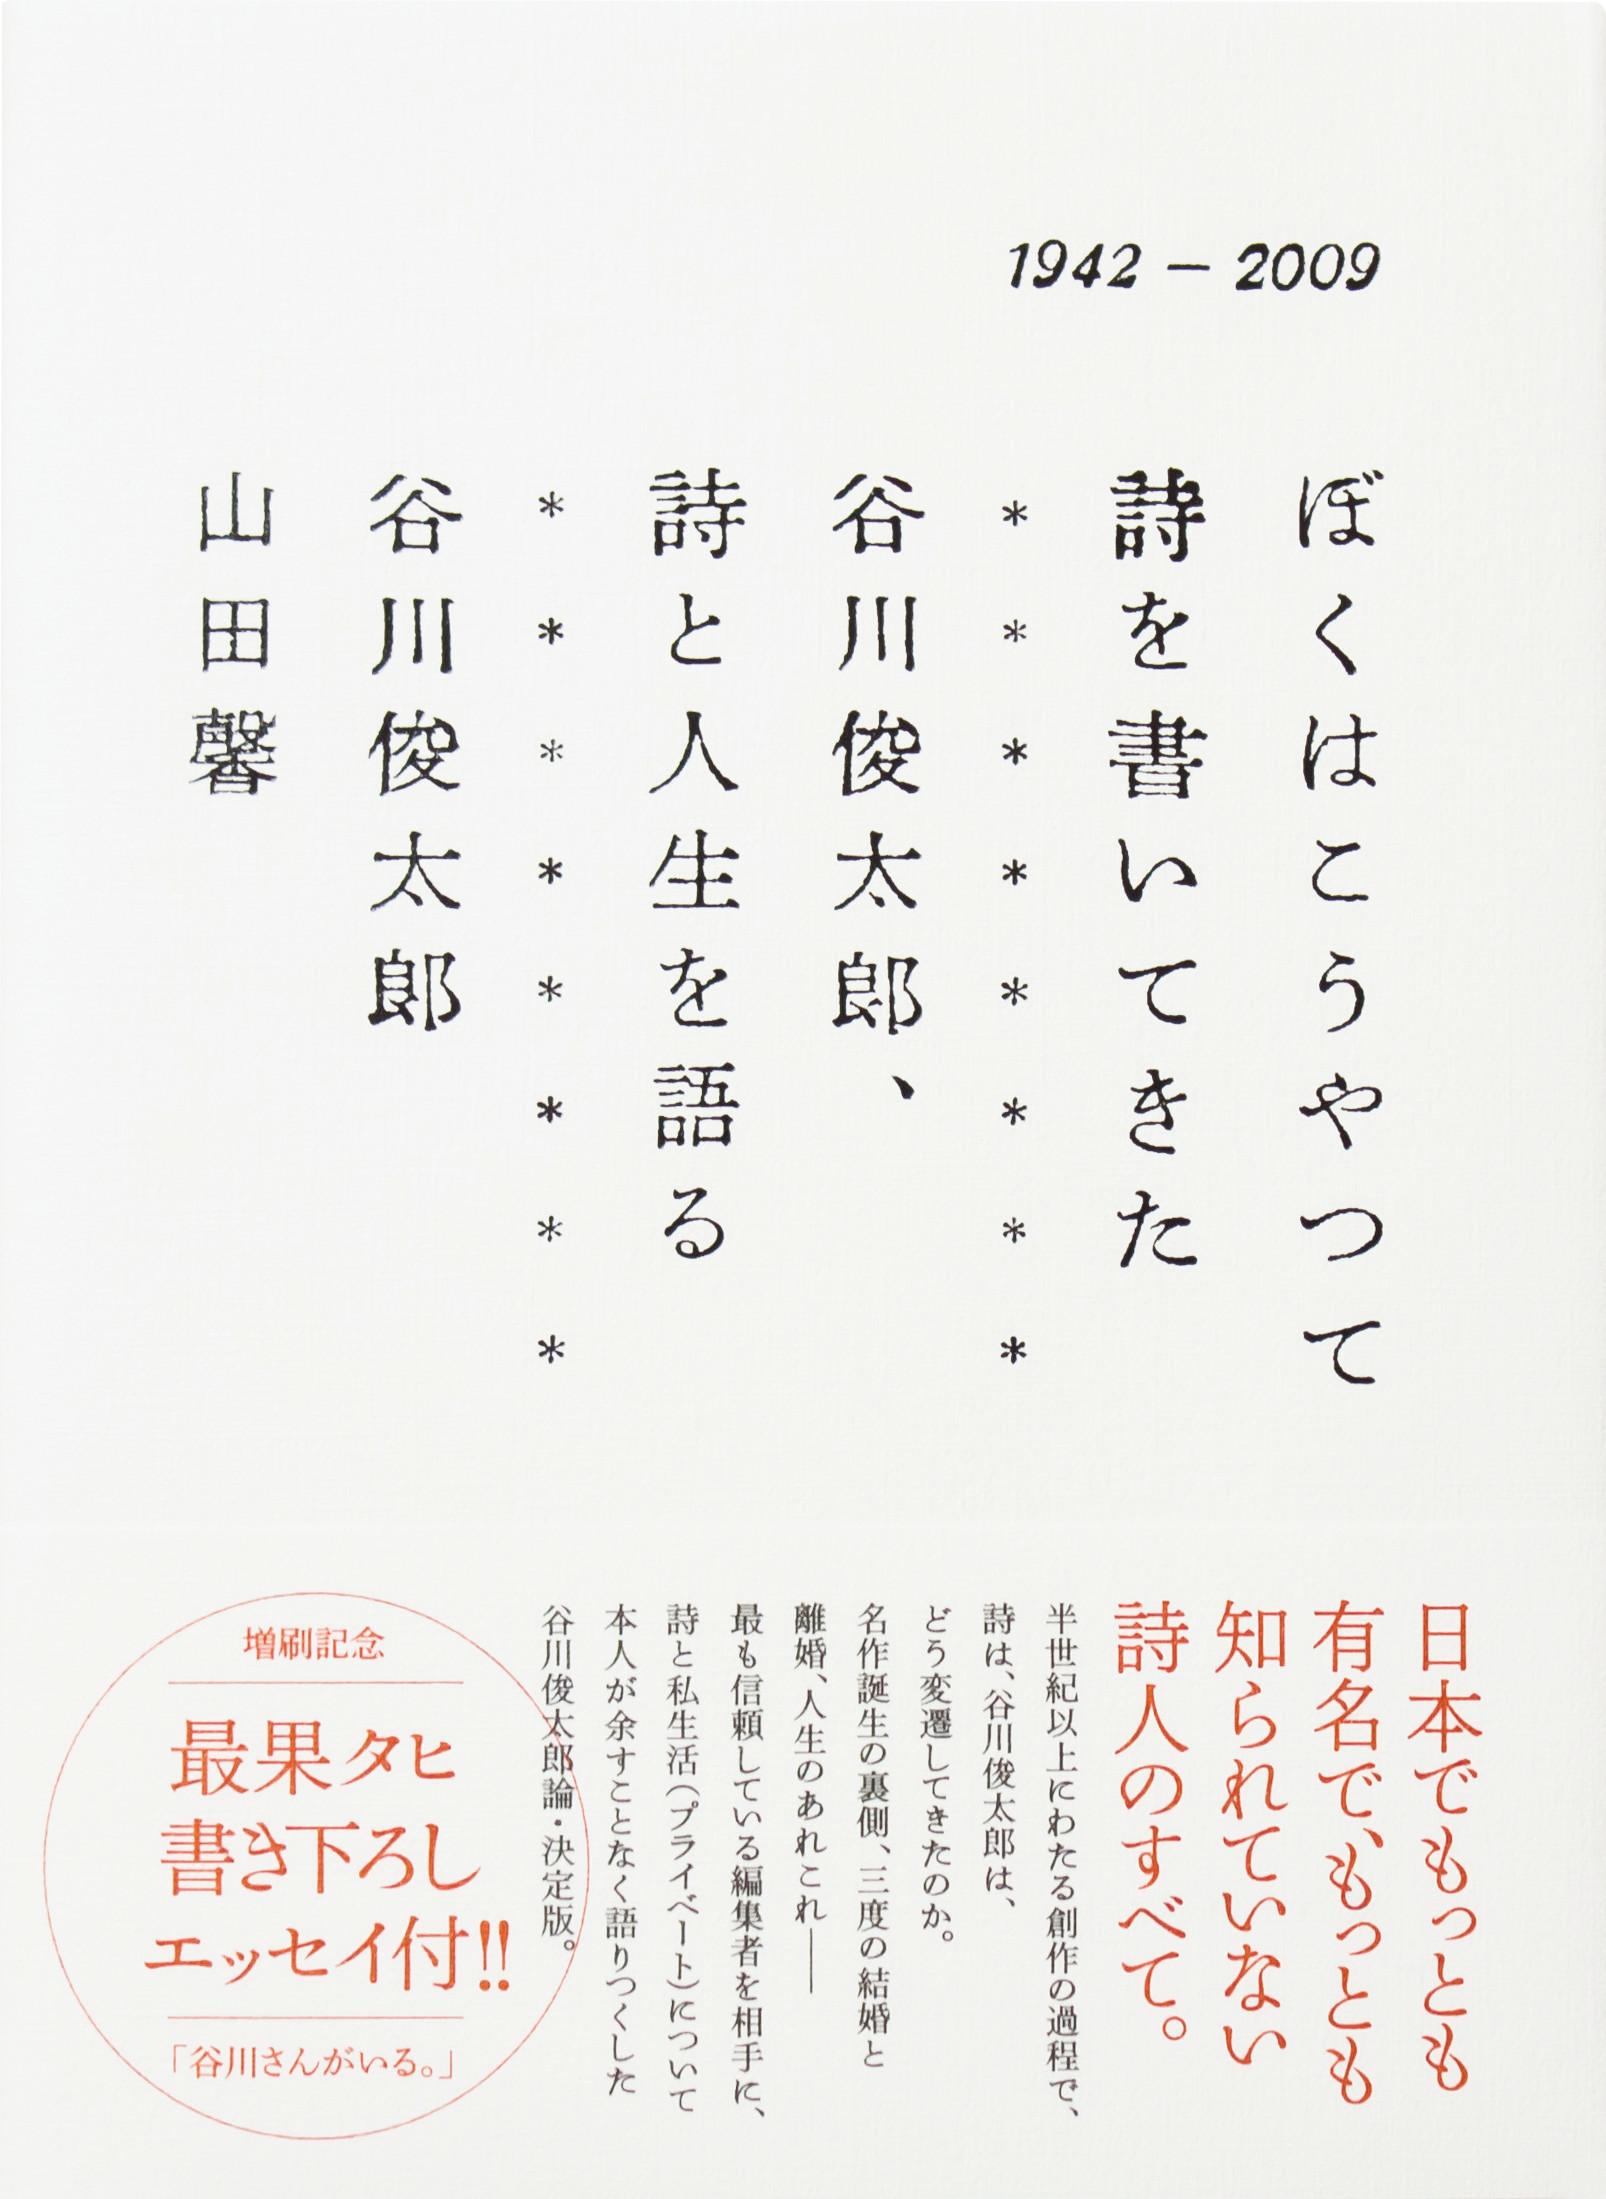 1942 – 2009
ぼくはこうやつて
詩を書いてきた
＊＊＊＊＊＊＊＊
谷川俊太郎、
詩と人生を語る
＊＊＊＊＊＊＊＊
谷川俊太郎
山田馨
日本でもっとも
有名で、もっとも
知られていない
詩人のすべて。
半世紀以上にわたる創作の過程で、
詩は、谷川俊太郎は、
どう変遷してきたのか。
名作誕生の裏側、三度の結婚と
離婚、人生のあれこれ――
最も信頼している編集者を相手に、
詩と私生活（プライベート）について
本人が余すことなく語りつくした
谷川俊太郎論・決定版。
増刷記念
最果タヒ
書き下ろし
エッセイ付!!
「谷川さんがいる。」